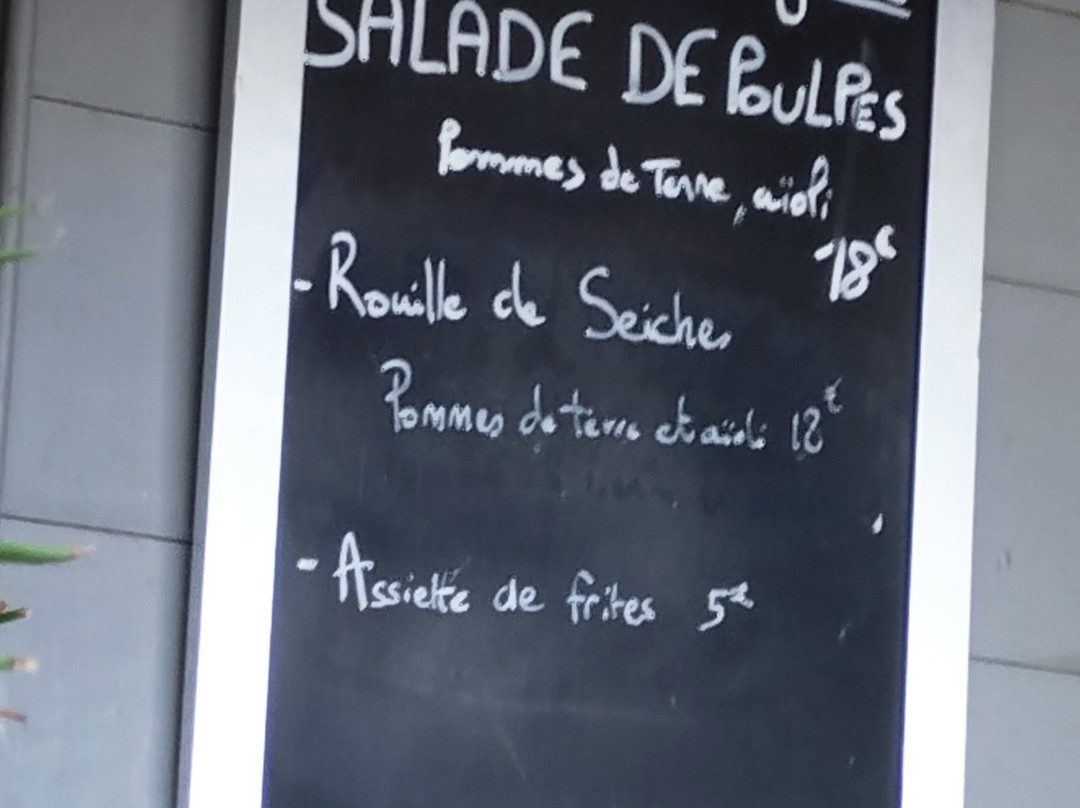 SALADE DE POULPES
Pommes de Terre, aïoli
18€
- Rouille de Seiches
Pommes de terre et aïoli 18€
- Assiette de frites 5€